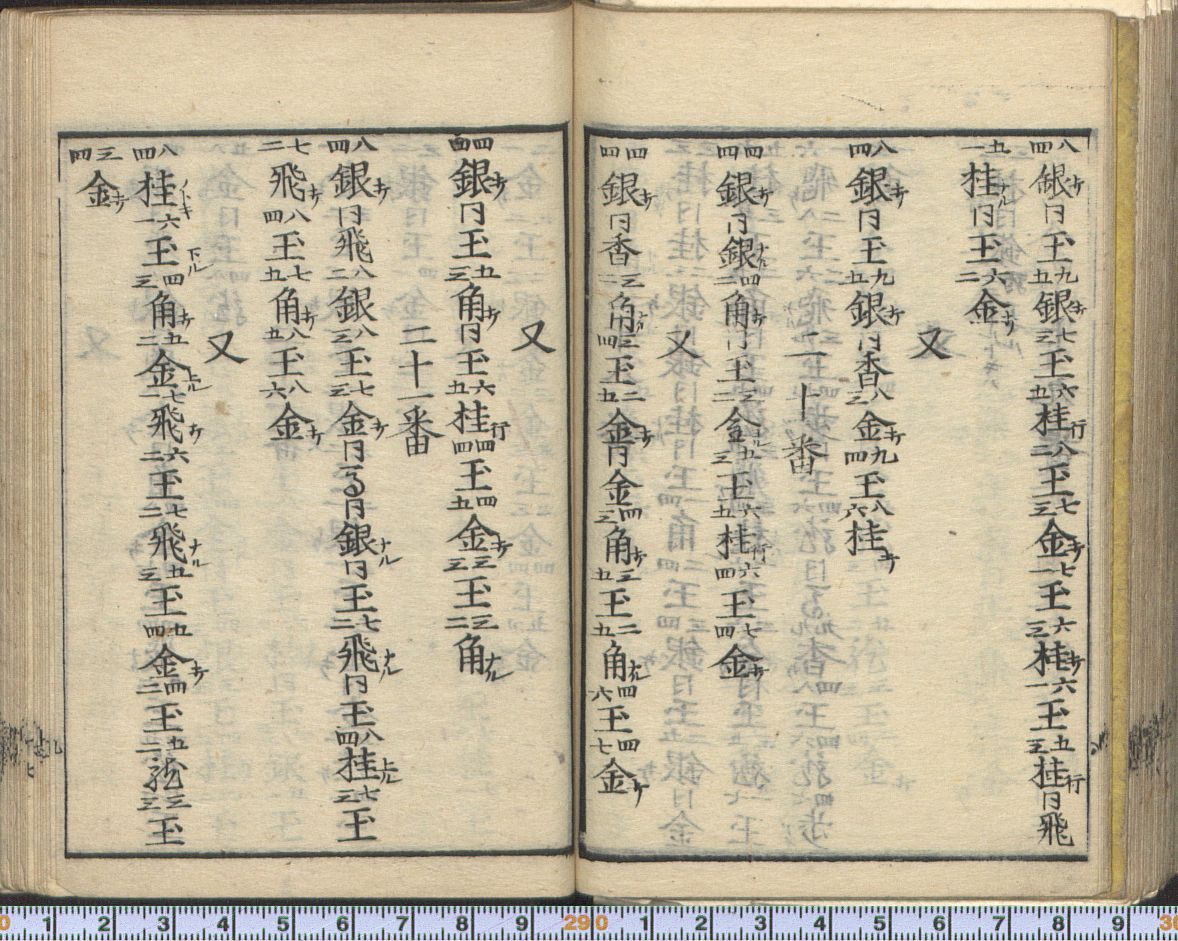 八四銀打同王九五銀打七三王六五桂行八二王七三金打七一王六三桂打六一王五三桂行同飛
五一桂ナル同王六二金打
又
八四銀打同王九五銀打同香八三金打九四王八六桂打
二十番
四四銀打同銀ナル四二角打同王三二金ナル五三王六五桂行六四王七四金打
又
四四銀打同香三二角打三四王二五金打同金四三角打三五王二五角ナル四六王四七金打
又
四四銀打同王五三角打同王六五桂行四四王四五金打三三王三二角ナル
二十一番
八四銀打同飛八二銀八三王七三金打同馬同銀ナル同王七二飛ナル同王八四桂上ル七三王
七二飛打八四王七五角打八五王八六金打
又
八四桂ノトキ六一王下ル四三角打五二金上ル七一飛打六二王七二飛ナル五三王五四金打四三王五二龍三三王
三四金打